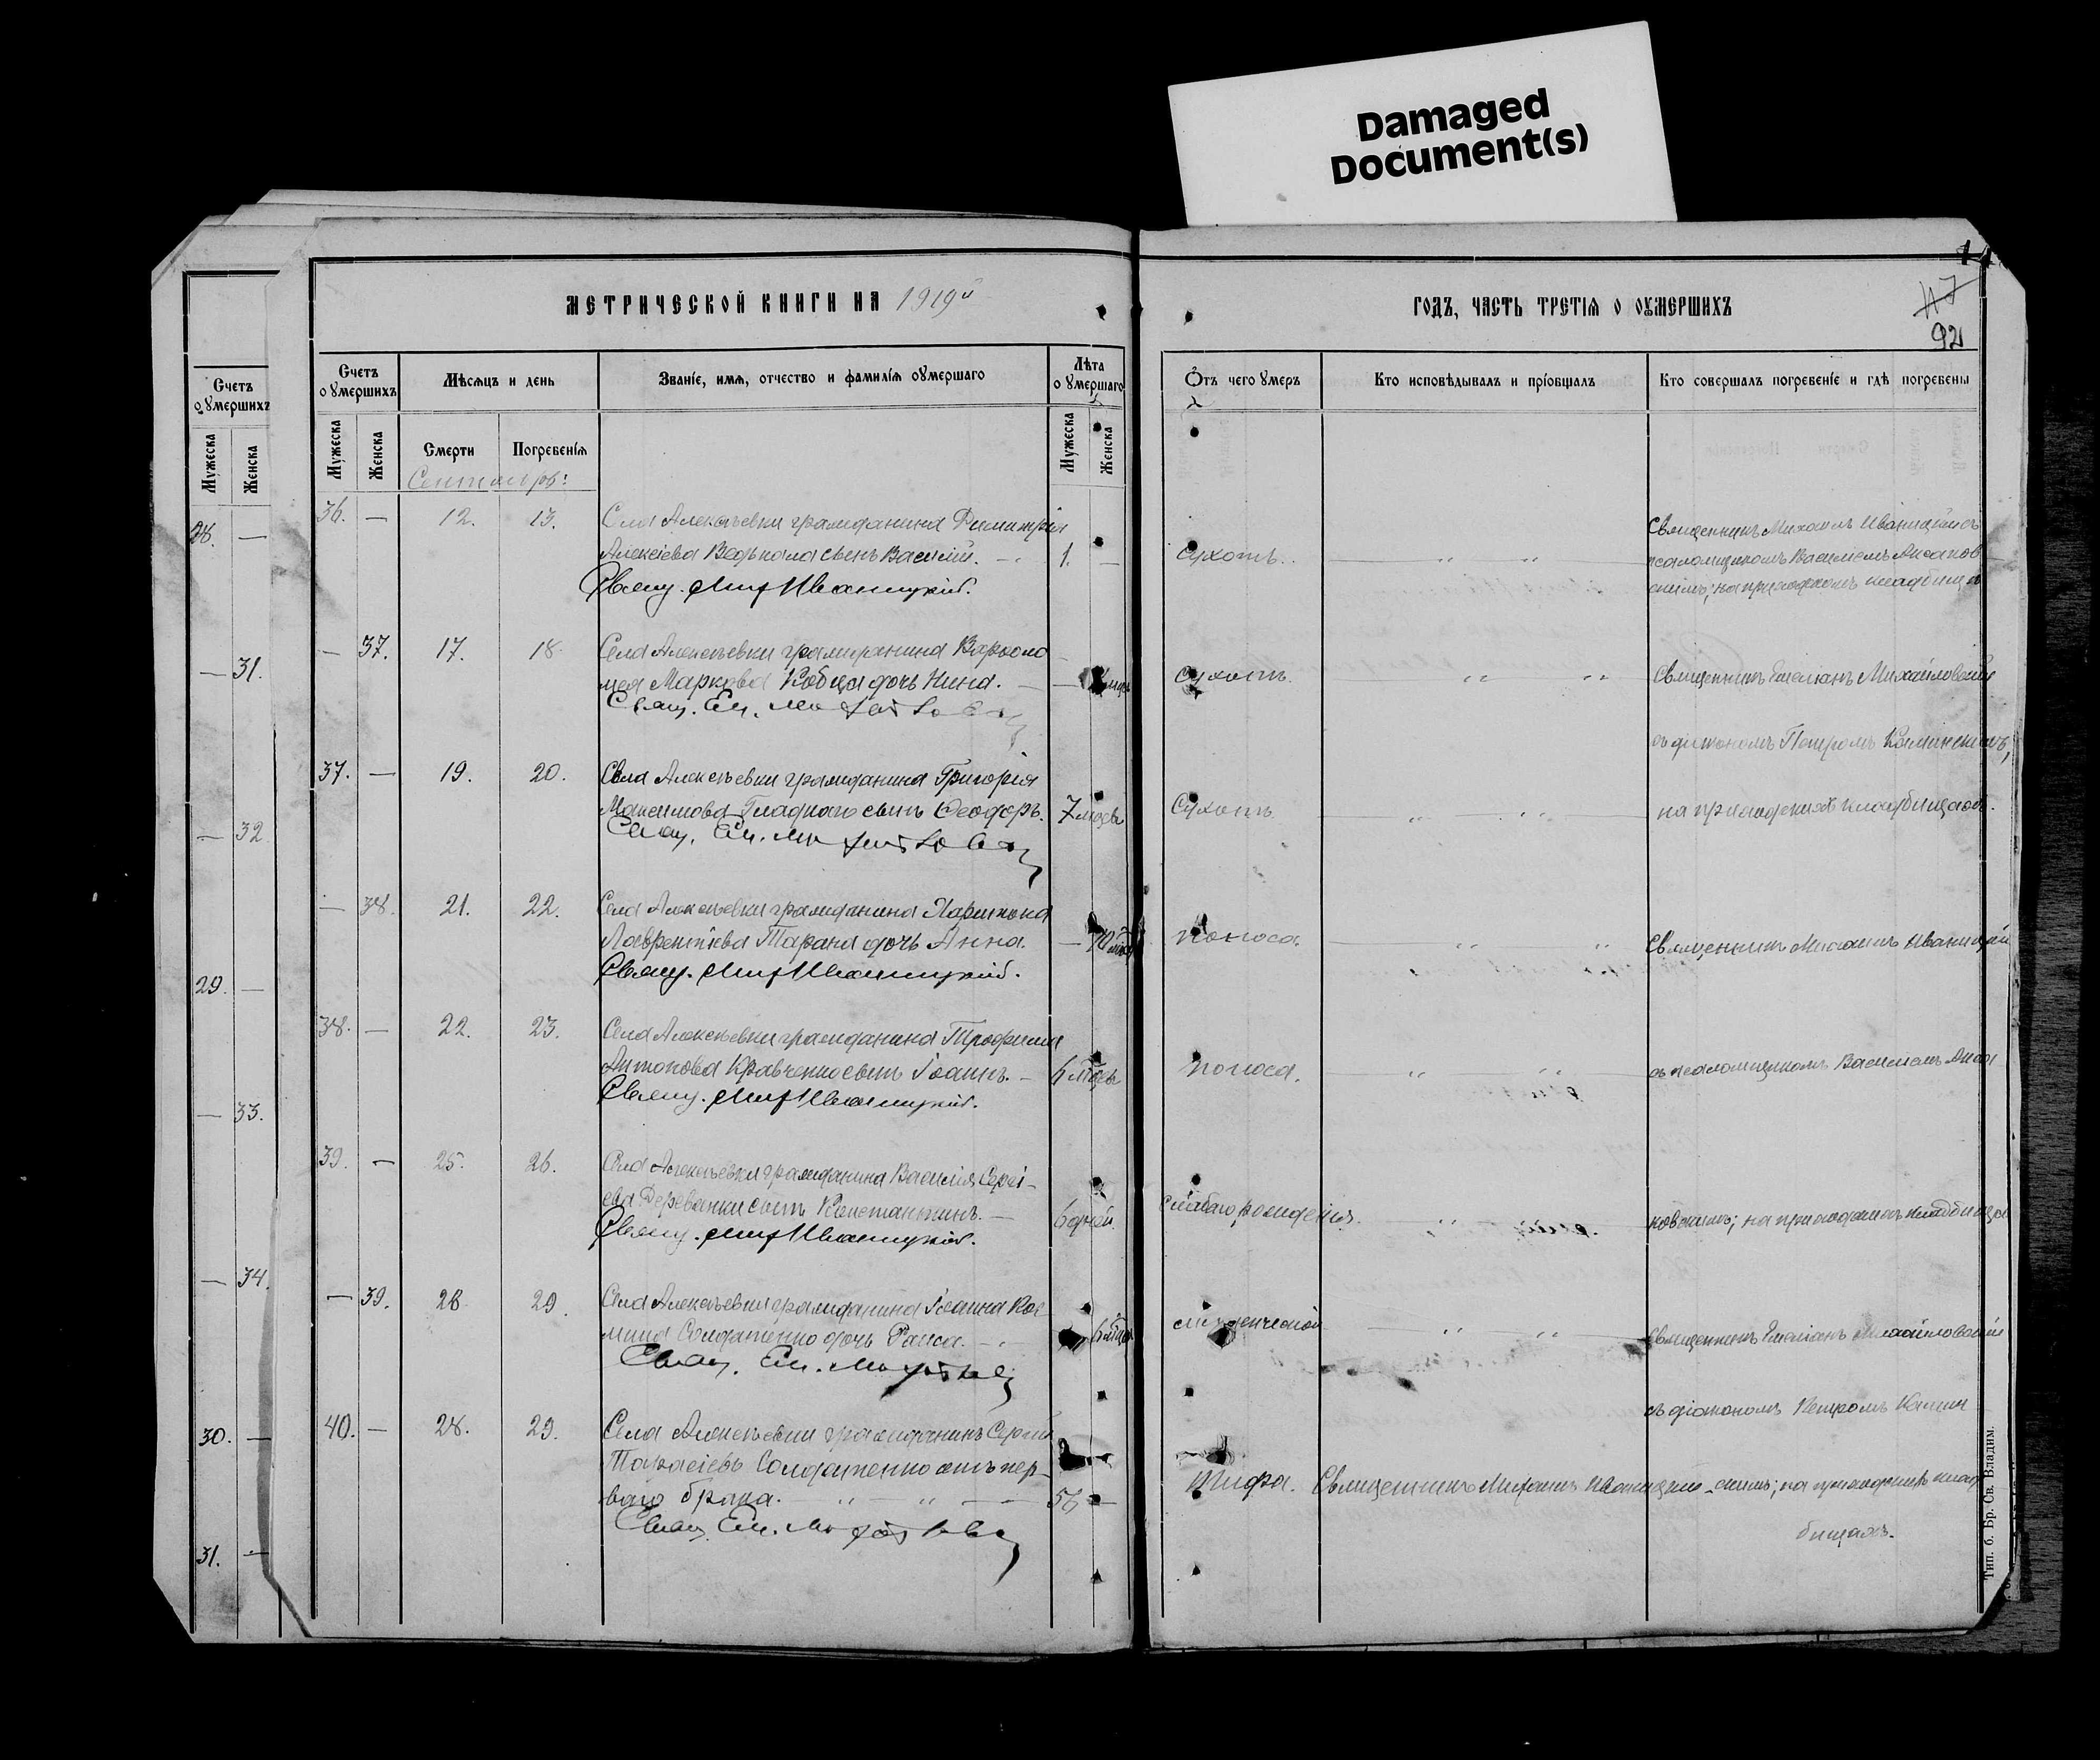 Damaged
Document(s)
МЕТРИЧЕСКОЙ КНИГИ НА 1919й
ГОДЪ, ЧАСТЬ ТРЕТІЯ О ОУМЕРШИХЪ
92
Счетъ
о умершихъ
Мужеска
Женска
28. —
— 31.
— 32
29. —
— 33.
— 34.
30. —
31. —
Счетъ
о умершихъ
Мѣсяцъ и день
Званіе, имя, отчество и фамилія оумершаго
Лѣта
о умершаго
Отъ чего умеръ
Кто исповѣдывалъ и пріобщалъ
Кто совершалъ погребеніе и гдѣ погребены
Мужеска
Женска
Смерти
Погребенія
Мужеска
Женска
Сентябрь:
36. — 12. 13. Села Алексѣевки гражданина Димитрія
Алексіева сынъ Василій. 1. —
Свящ. Мих Иваницкій.
Сухотъ.
Священникъ Михаилъ Иваницкій съ
псаломщикомъ Василіемъ Аксаков
скимъ; на приходскомъ кладбищѣ
— 37. 17. 18. Села Алексѣевки гражданина Варѳоло
мея Маркова Кобца дочь Нина. —
Свящ. Ем. Михайловскій
Сухотъ.
Священникъ Емеліанъ Михайловскій
съ діакономъ Петромъ Каминскимъ,
37. — 19. 20. Села Алексѣевки гражданина Григорія
Максимова Гладкаго сынъ Ѳеодоръ. 7 мѣсяц
Свящ. Ем. Михайловскій
Сухотъ.
на приходскихъ кладбищахъ.
— 38. 21. 22. Села Алексѣевки гражданина Харитона
Лаврентіева Тарана дочь Анна. —
Свящ. Мих Иваницкій.
Поноса.
Священникъ Михаилъ Иваницкій
38. — 22. 23. Села Алексѣевки гражданина Трофима
Антонова Кравченко сынъ Іоаннъ. 6 мѣсяц
Свящ. Мих Иваницкій.
Поноса.
съ псаломщикомъ Василіемъ Аксa
39. — 25. 26. Села Алексѣевки гражданина Василія Сергі-
ева Деревянки сынъ Константинъ. — 6 дней.
Свящ. Мих Иваницкій.
Слабаго рожденія.
ковскимъ; на приходскихъ кладбищахъ
— 39. 28 29. Села Алексѣевки гражданина Іоанна Кос
мина Солдатенко дочь Раиса.
Свящ. Ем. Михайловскій
Священникъ Емеліанъ Михайловскій
съ діакономъ Петромъ Камин
40. — 28. 29. Села Алексѣевки гражданинъ Сергій
Тарасіевъ Солдатенко отъ пер-
ваго брака. 56 —
Свящ. Ем. Михайловскій
Тифа.
Священникъ Михаилъ Иваницкій
скимъ; на приходскихъ клад
бищахъ.
Тип. б. Бр. Св. Владим.